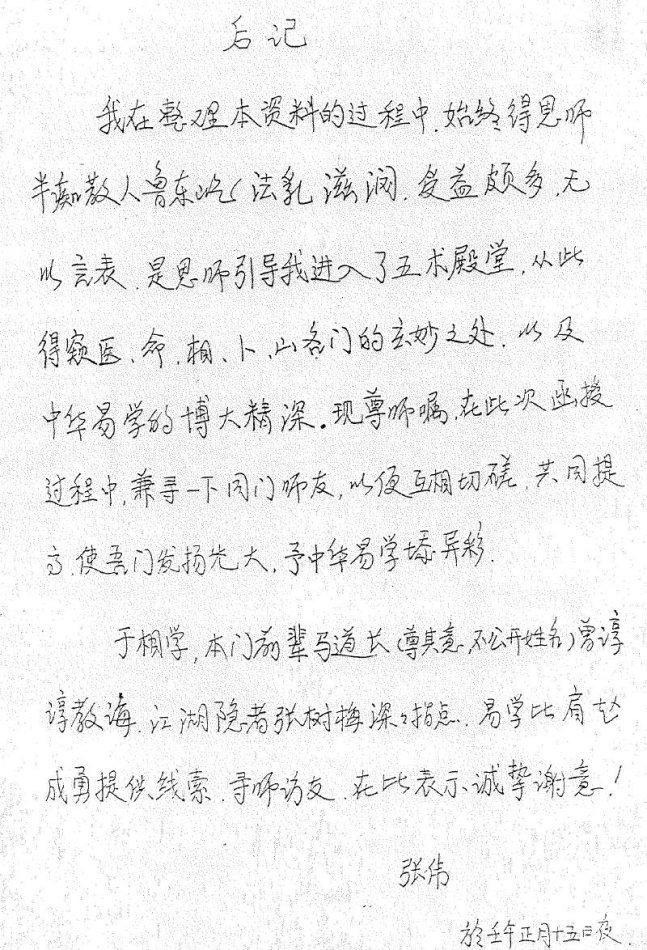 后记
我在整理本资料的过程中.始终得恩师
半痴散人鲁东屹(法乳滋润.受益颇多.无
以言表.是恩师引导我进入了五术殿堂.从此
得窥医.命.相、卜、山各门的玄妙之处.以及
中华易学的博大精深.现尊师嘱,在此次函授
过程中,兼寻一下同门师友,以便互相切磋.共同提
高.使吾门发扬光大.予中华易学添异彩.
于相学,本门前辈马道长(尊其意,不公开姓名)曾谆
谆教诲.江湖隐者张树梅深深指点.易学比肩赵
成勇提供线索.寻师访友.在此表示诚挚谢意!
张伟
於壬午正月十五日夜